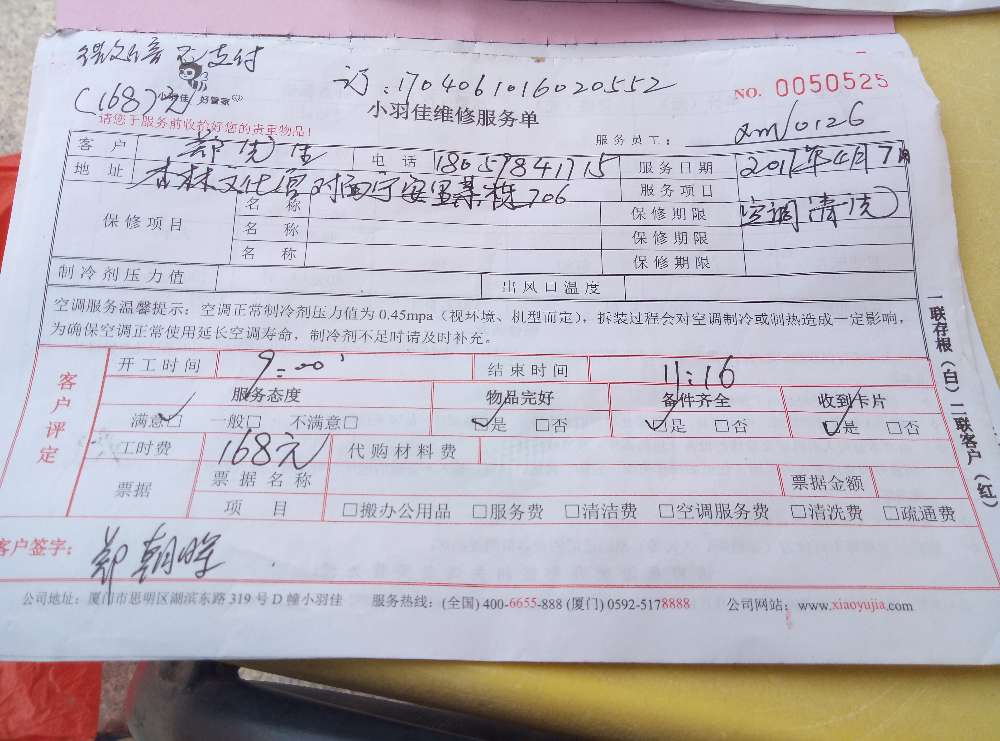 微信不支付
订:170406101602055​2
(168)元
小羽佳 好管家
NO. 0050525
小羽佳维修服务单
请您于服务前收拾好您的贵重物品!
服务员工: xm0126
客户 郑先生 电话 18059841715 服务日期 2017年4月7
地址 杏林文化宫对面宁安里某栋706 服务项目 空调(清洗)
保修项目 名称 保修期限
名称 保修期限
名称 保修期限
制冷剂压力值 出风口温度
空调服务温馨提示:空调正常制冷剂压力值为 0.45mpa(视环境、机型而定),拆装过程会对空调制冷或制热造成一定影响,
为确保空调正常使用延长空调寿命,制冷剂不足时请及时补充。
客户评定
开工时间 9=00 结束时间 11:16
服务态度 物品完好 备件齐全 收到卡片
满意☑ 一般□ 不满意□ ☑是 □否 ☑是 □否 ☑是 □否
工时费 168元 代购材料费
票据 票据名称 票据金额
项目 □搬办公用品 □服务费 □清洁费 □空调服务费 □清洗费 □疏通费
客户签字: 郑朝晖
公司地址:厦门市思明区湖滨东路 319 号 D 幢小羽佳 服务热线:(全国) 400-6655-888 (厦门) 0592-5178888 公司网站:www.xiaoyujia.com
一联存根(白)二联客户(红)